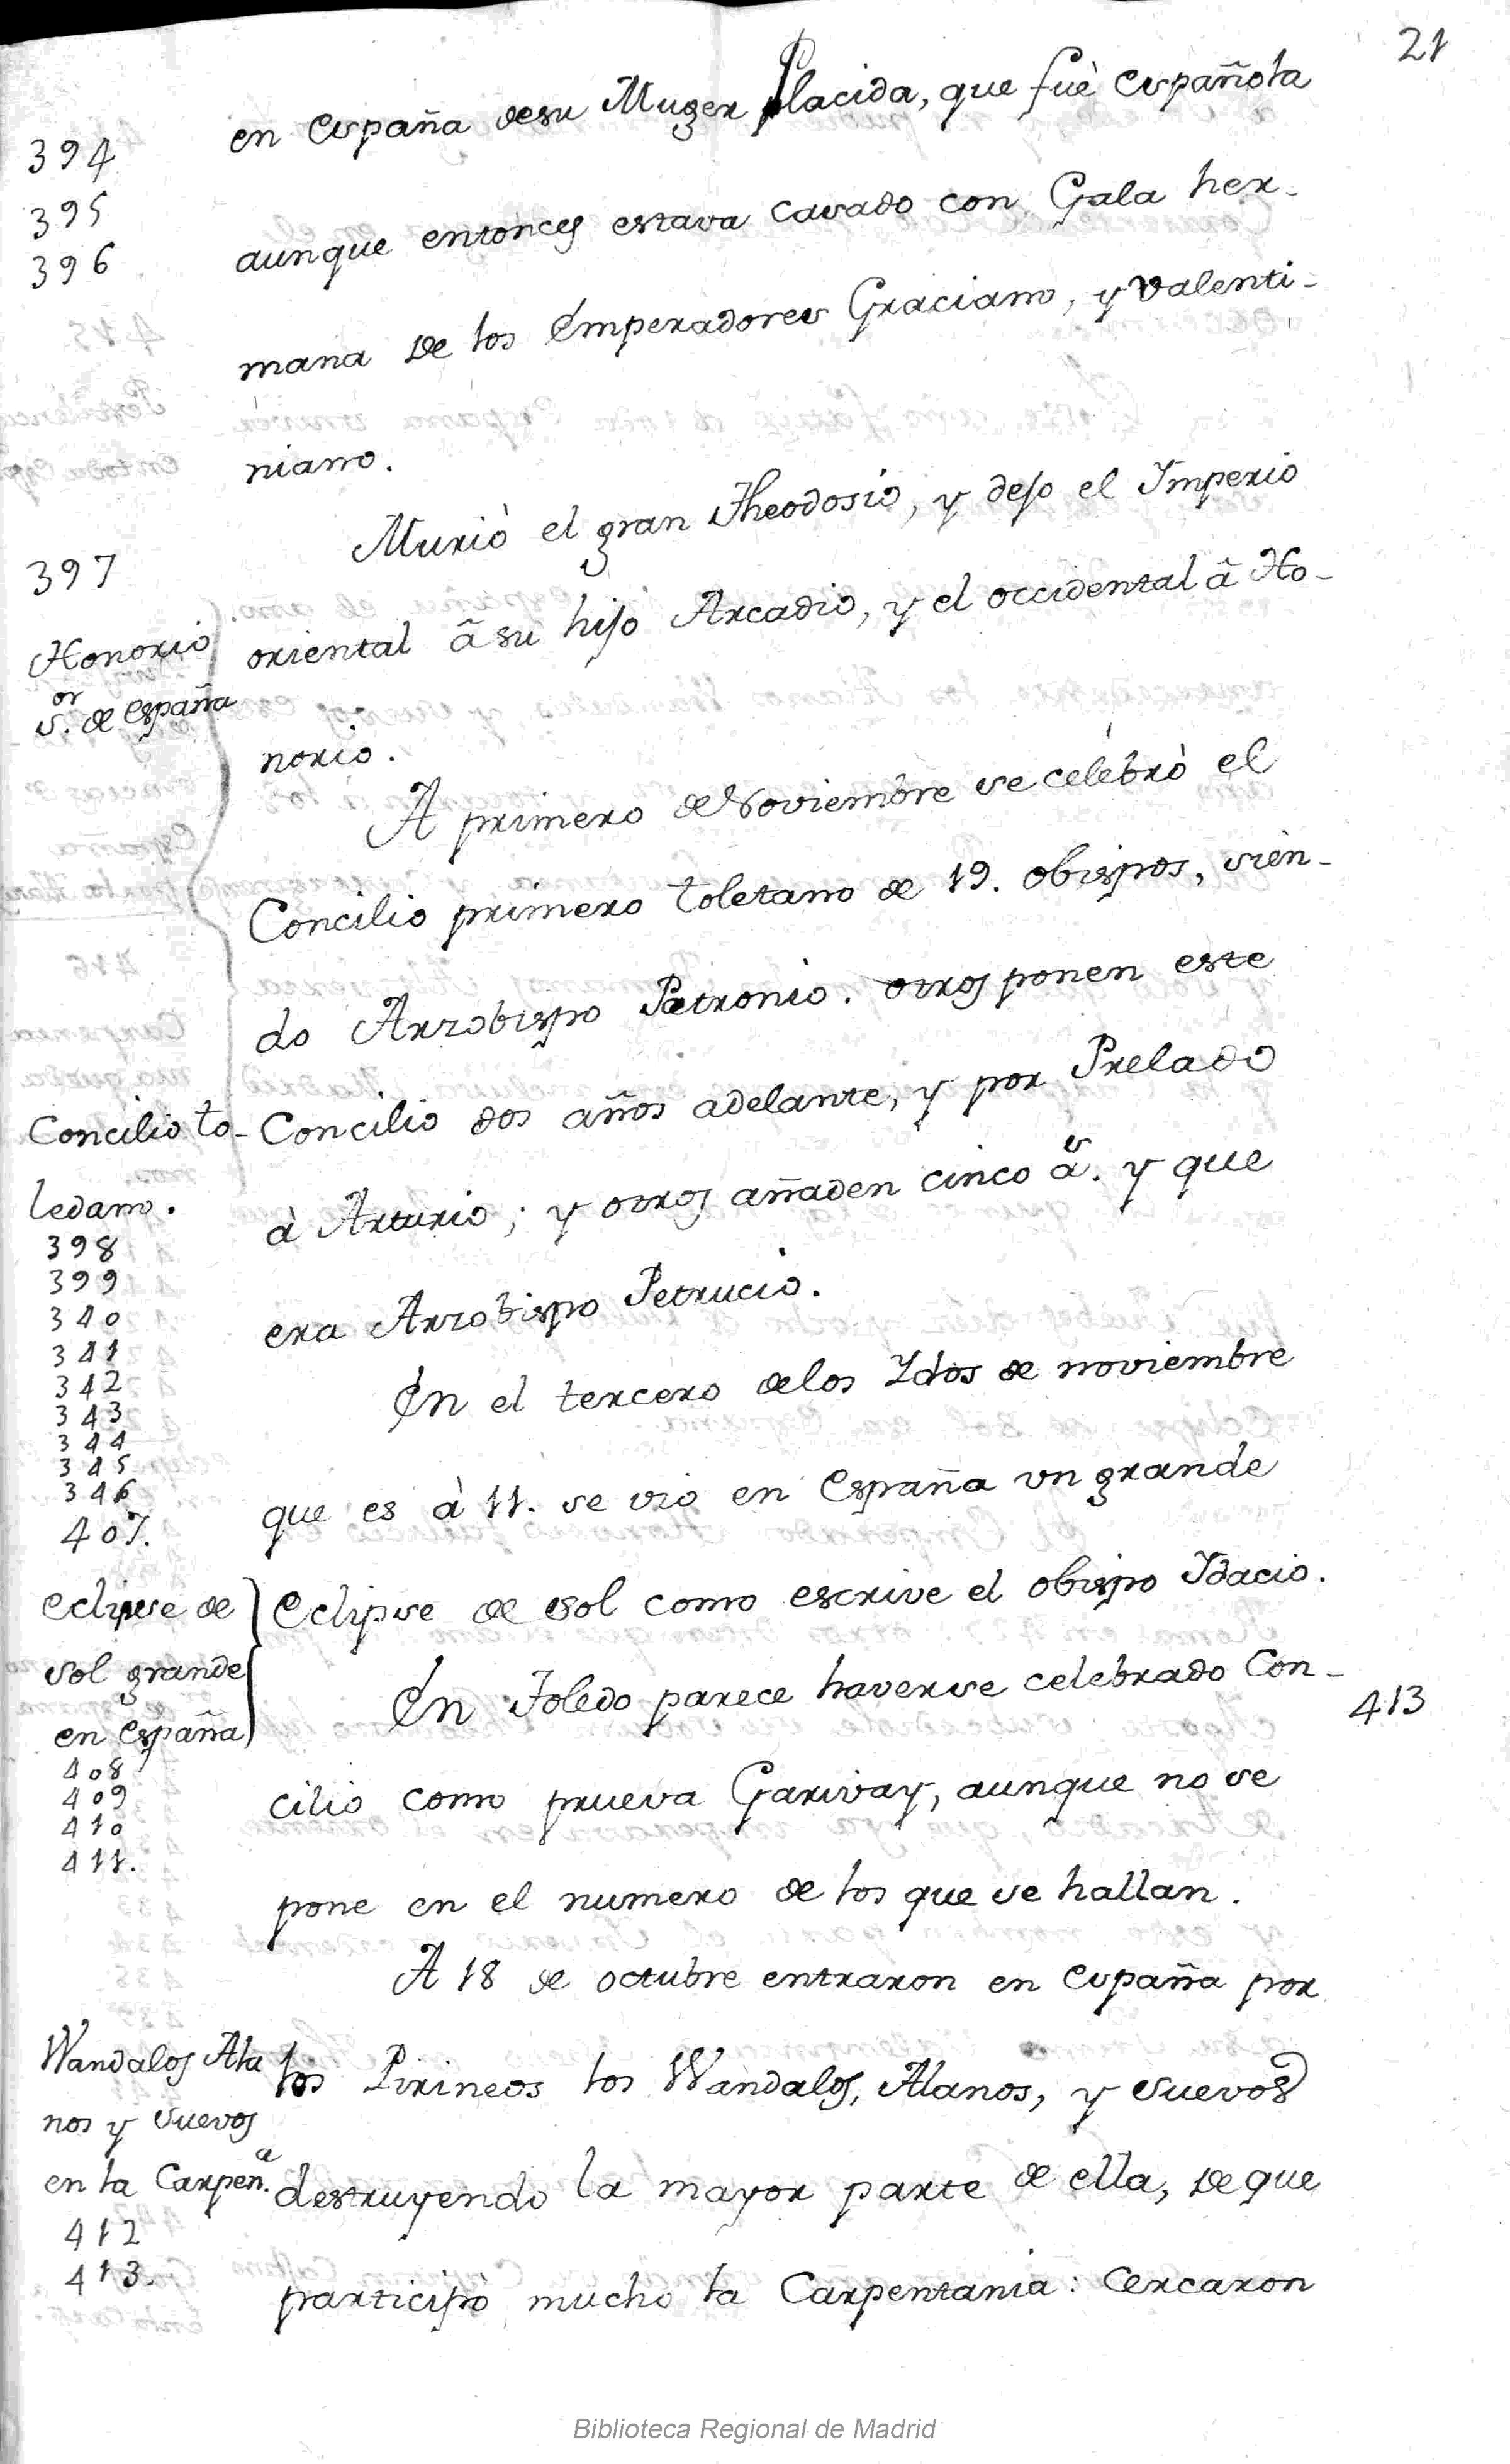 21
394
395
396
en España desu Muger Placida, que fuè Española
aunque entonces estava casado con Gala her-
mana de los Emperadores Graciano, y Valenti-
niano.
397
Honorio
s.or de España
Murió el gran Theodosio, y dejo el Imperio
oriental â su hijo Arcadio, y el occidental â Ho-
norio.
A primero de Noviembre se celebrò el
Concilio primero toletano de 19. obispos, sien-
do Arzobispo Patronio. otros ponen este
Concilio to-
ledano.
Concilio dos años adelante, y por Prelado
à Arturio; y otros añaden cinco as. y que
era Arzobispo Petrucio.
398
399
340
341
342
343
344
345
346
407.
En el tercero delos Idos de noviembre
que es à 11. se vio en España un grande
Eclipse de
sol grande
en España
Eclipse de sol como escrive el obispo Idacio.
408
409
410
411.
En Toledo parece haverse celebrado Con-
413
cilio como prueva Garivay, aunque no se
pone en el numero de los que se hallan.
A 18 de octubre entraron en España por
Wandalos Ala
nos y Suevos
en la Carpen.a
412
413.
los Pirineos los Wandalos, Alanos, y Suevos
destruyendo la mayor parte de ella, de que
participò mucho la Carpentania: Cercaron
Biblioteca Regional de Madrid